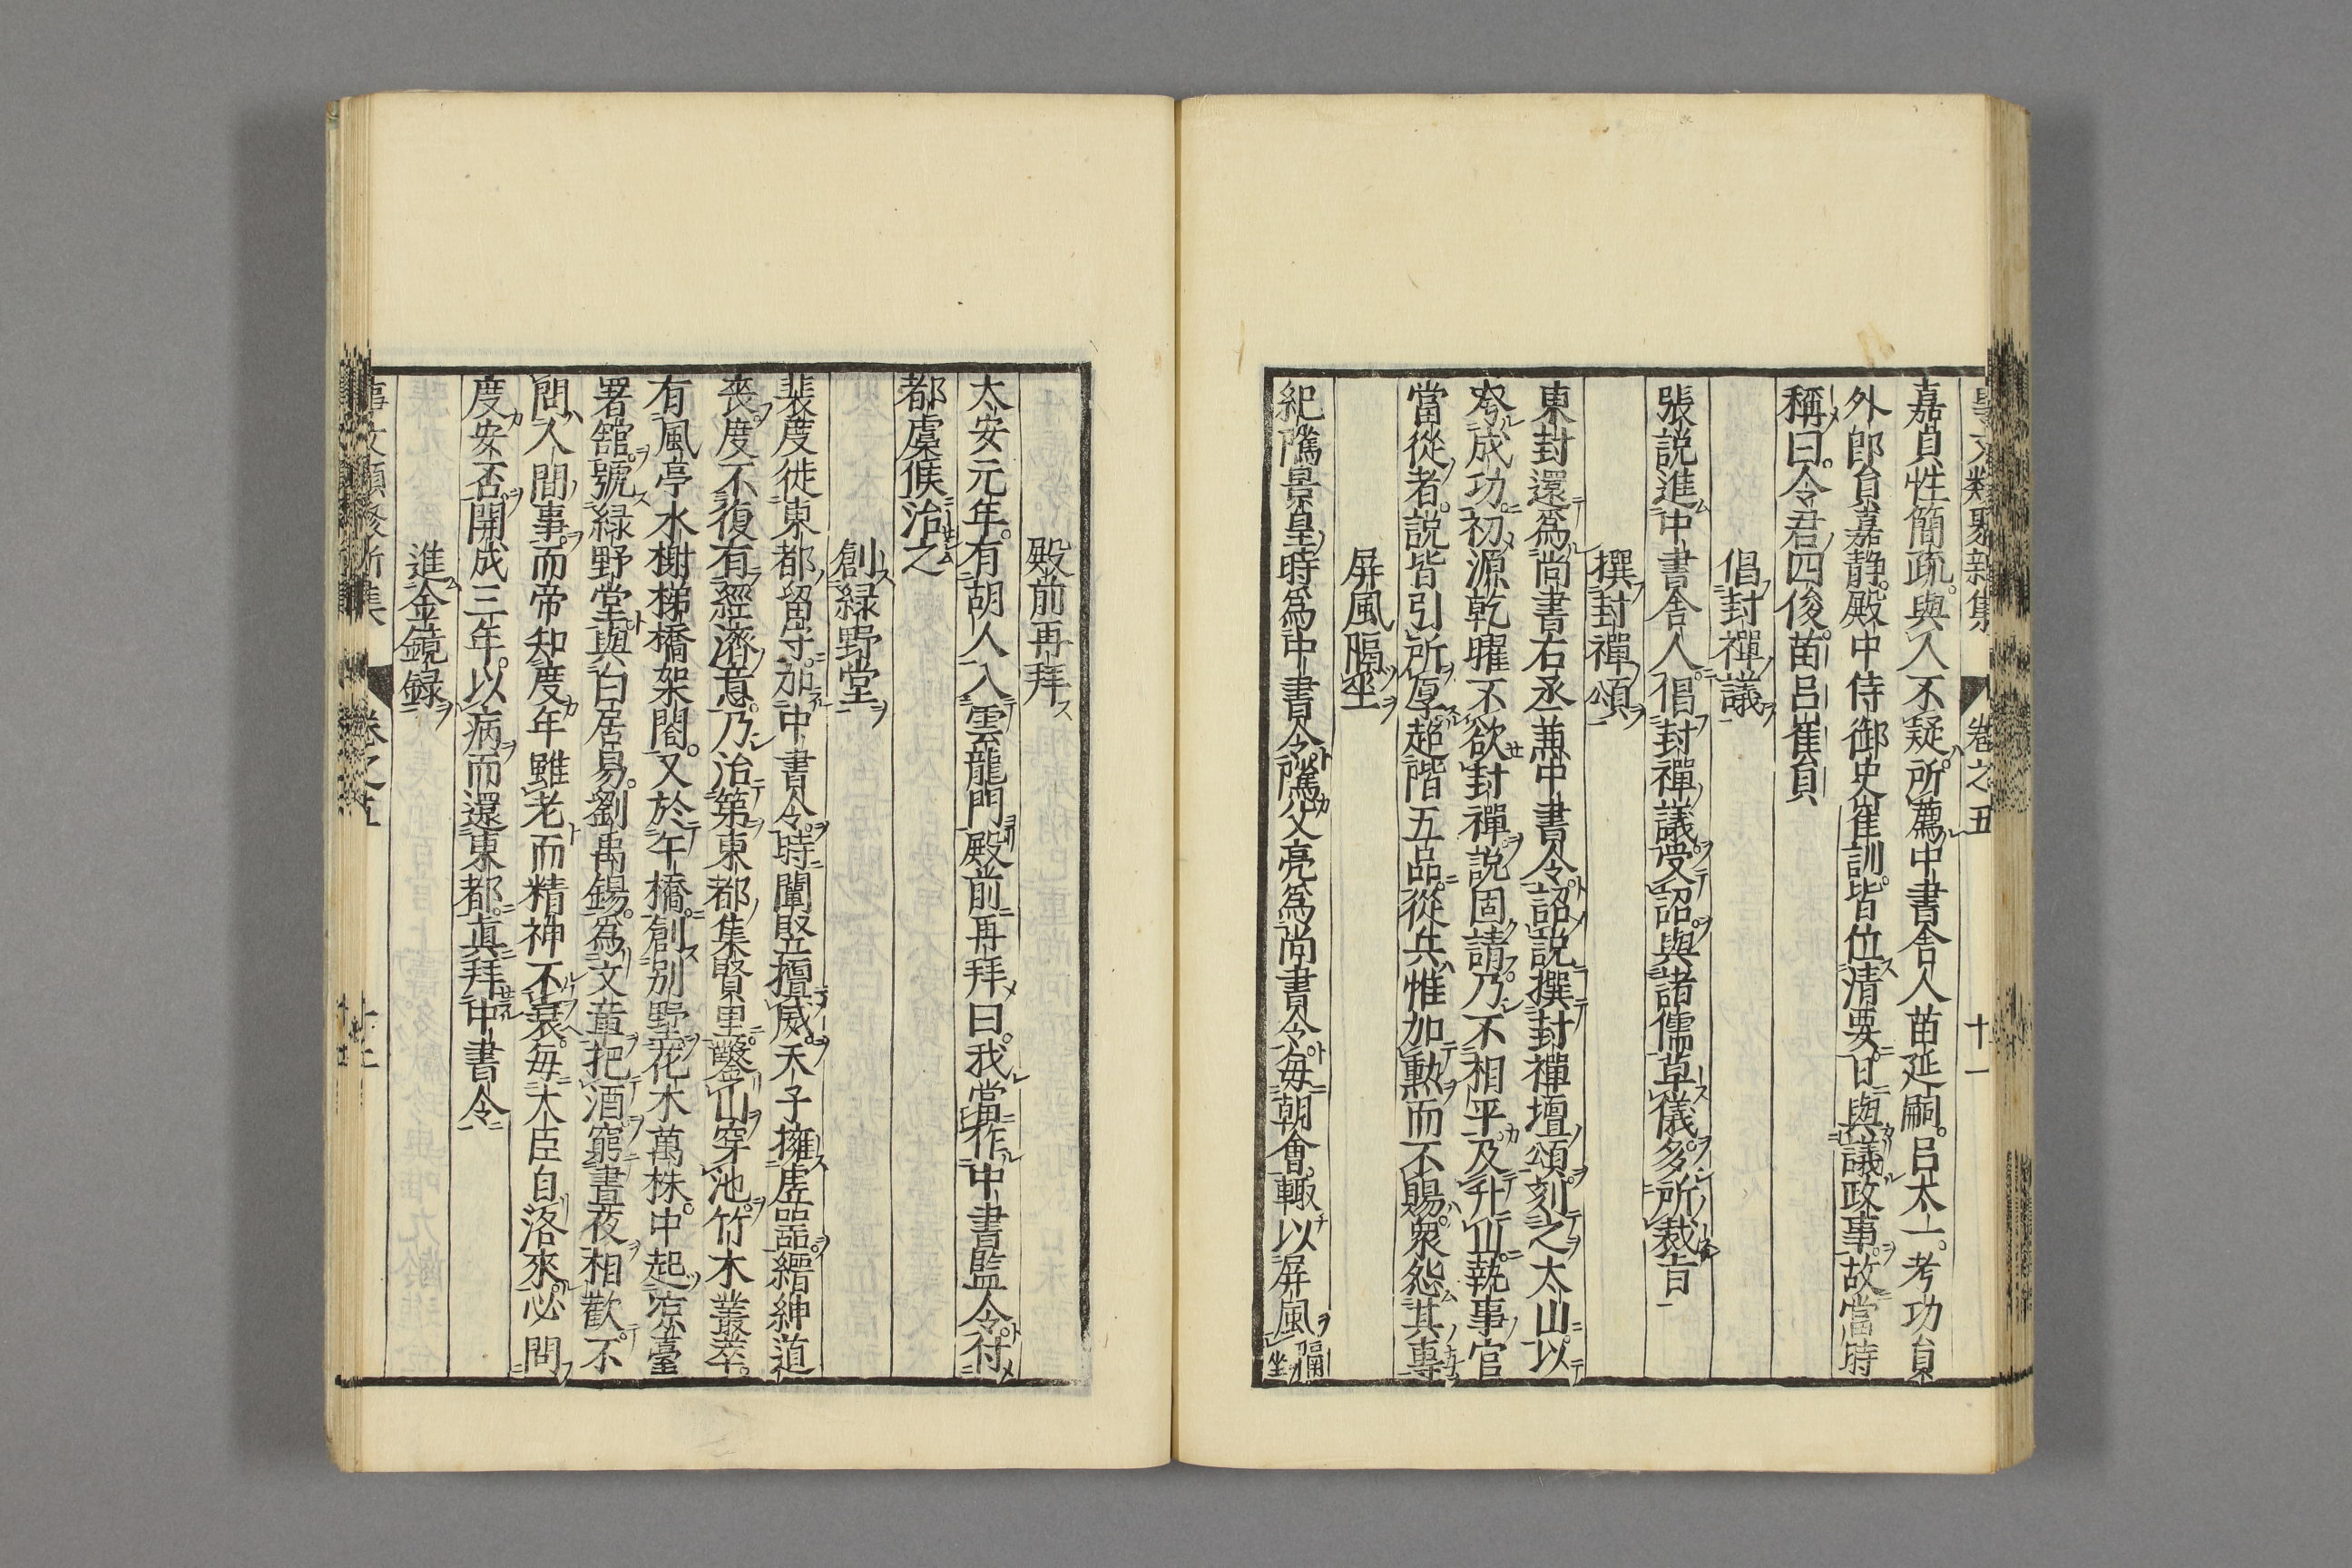 事文類聚新集 卷之五 十一
嘉貞性簡疏與人不疑所薦中書舍人苗延嗣呂太一考功員
外郎員嘉静殿中侍御史崔訓皆位清要日與議政事故當時
稱曰令君四俊苗呂崔員
倡封禪議
張説進中書舍人倡封禪議受詔與諸儒草儀多所裁㫖
撰封禪頌
東封還爲尚書右丞兼中書令詔説撰封禪壇頌刻之太山以
夸成功初源乾曜不欲封禪説固請乃不相平及升山執事官
當從者説皆引所厚超階五品從兵惟加勲而不賜衆怨其專
屏風隔坐
紀隲景皇時爲中書令隲父亮爲尚書令毎朝會輙以屏風隔坐
殿前再拜
太安元年有胡人入雲龍門殿前再拜曰我當作中書監令付
都虞候治之
創緑野堂
裴度徙東都留守加中書令時閽竪擅威天子擁虚噐縉紳道
喪度不復有經濟意乃治第東都集賢里鑿山穿池竹木叢萃
有風亭水榭梯橋架閣又於午橋創别墅花木萬株中起凉臺
署舘號緑野堂與白居易劉禹錫爲文章把酒窮晝夜相歡不
問人間事而帝知度年雖老而精神不衰毎大臣自洛來必問
度安否開成三年以病而還東都真拜中書令
進金鏡録
事文類聚新集 卷之五